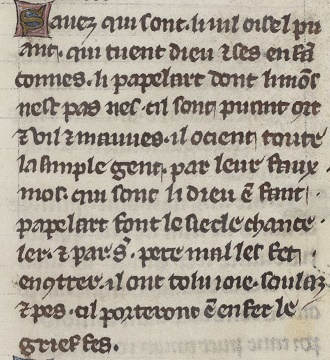 Sauez qui sont li uil oisel pu
ant· qui tuent dieu ⁊ ses enfā
connes· li papelart dont li mōs
nest pas nes· cil sont puant ort
⁊ uil ⁊ mauues· il ocient toute
la simple gent· par leur faux
mos· qui sont li dieu ē fant·
papelart font le siecle chance
ler· ⁊ par s̾· pere mal les fet
encōtrer· il ont tolu ioie· soulaz
⁊ pes· cil porteront ē enfer le
grief fes·